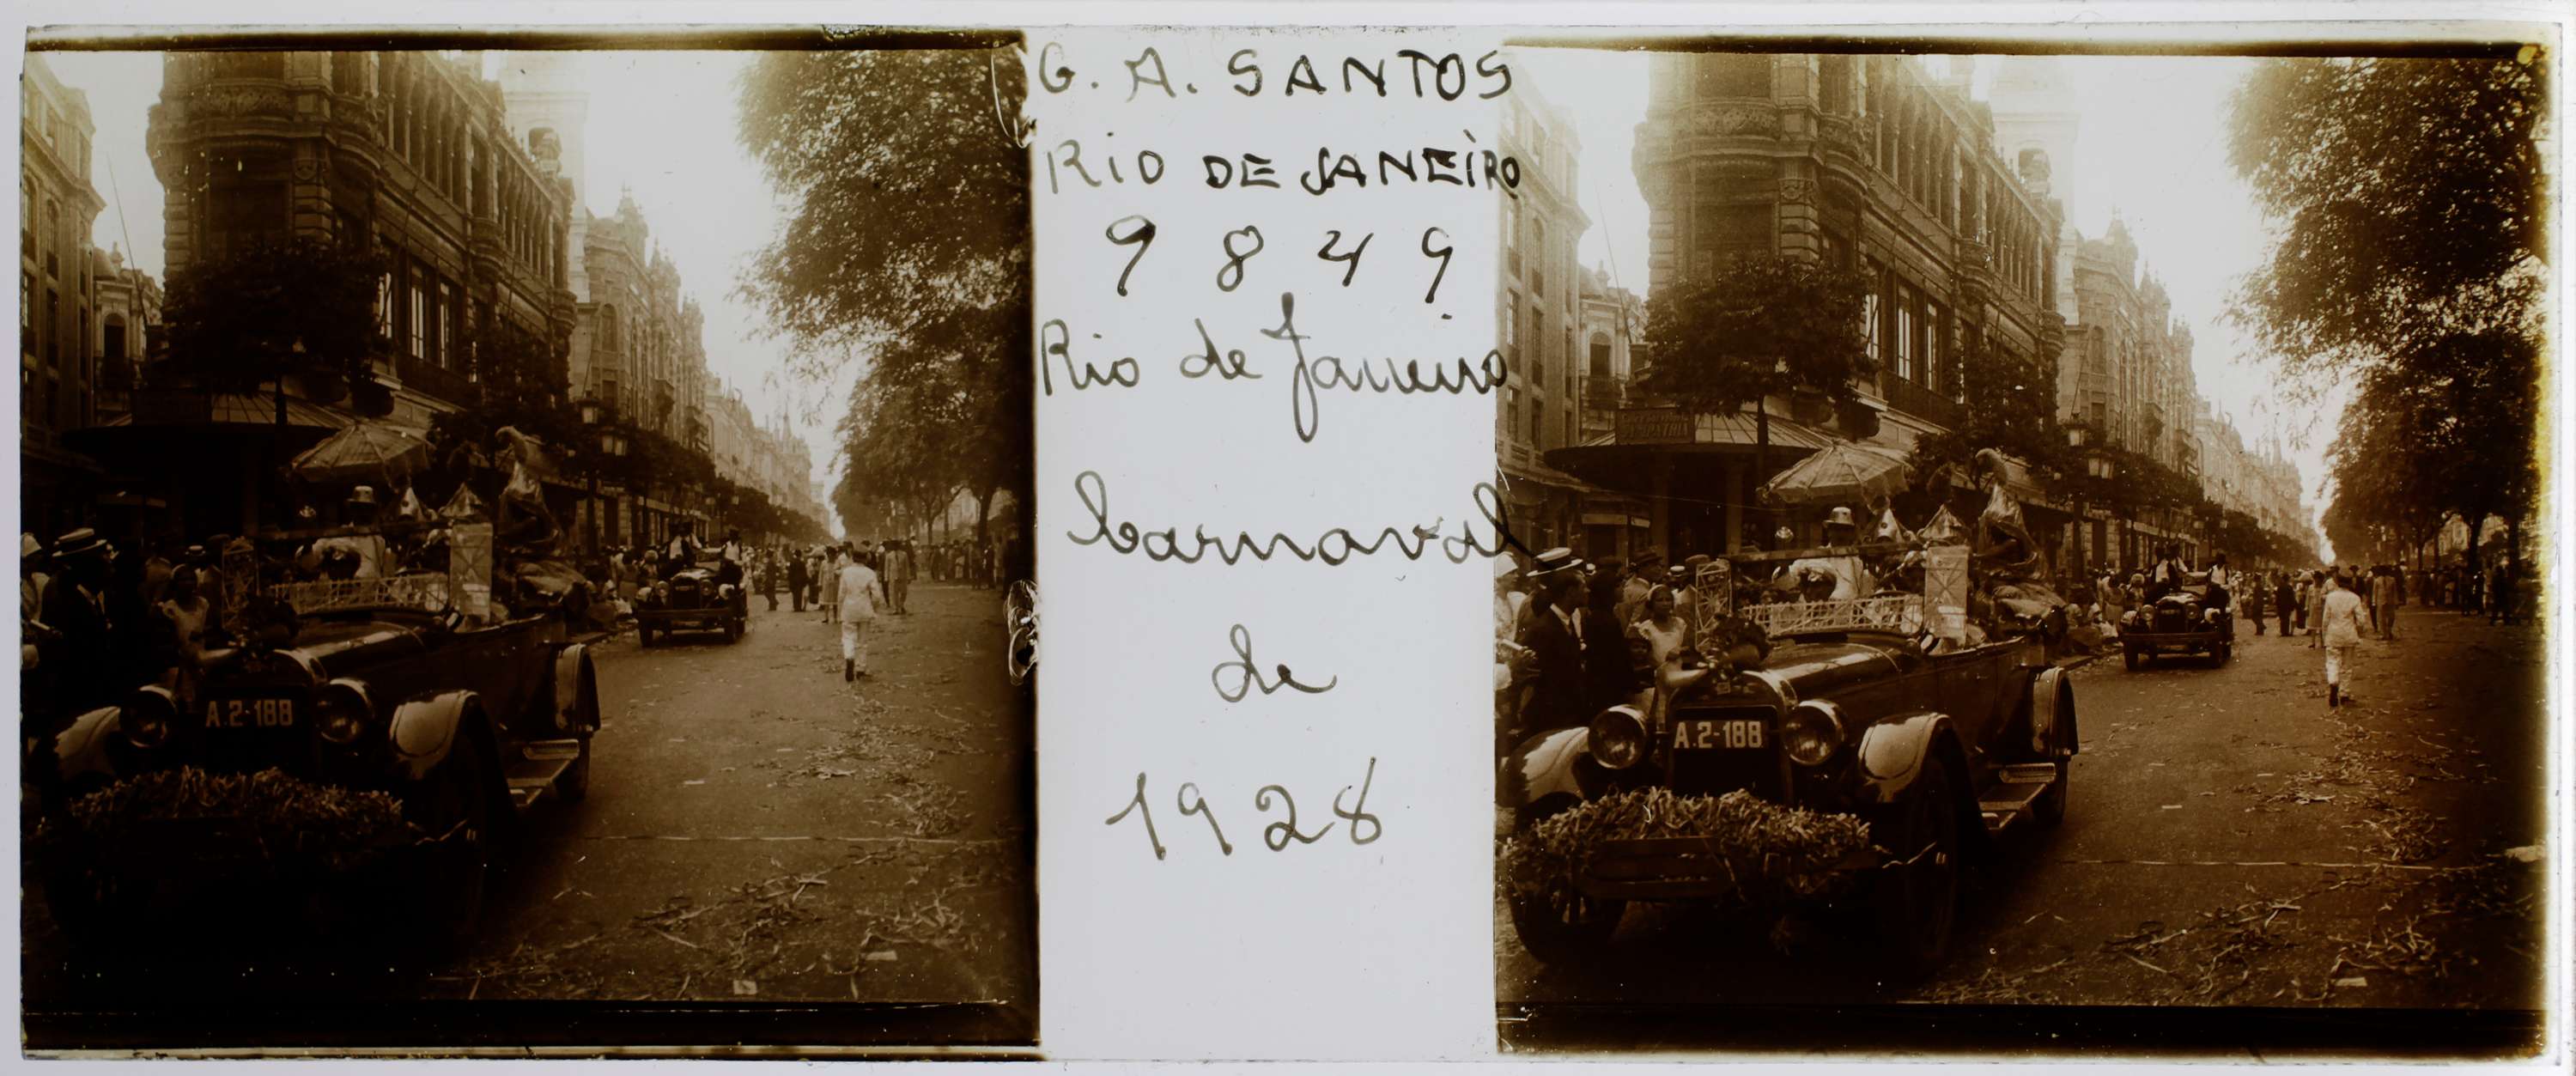 G. A. SANTOS
RIO DE JANEIRO
9849
Rio de Janeiro
Carnaval
de
1928
A.2-188
A.2-188